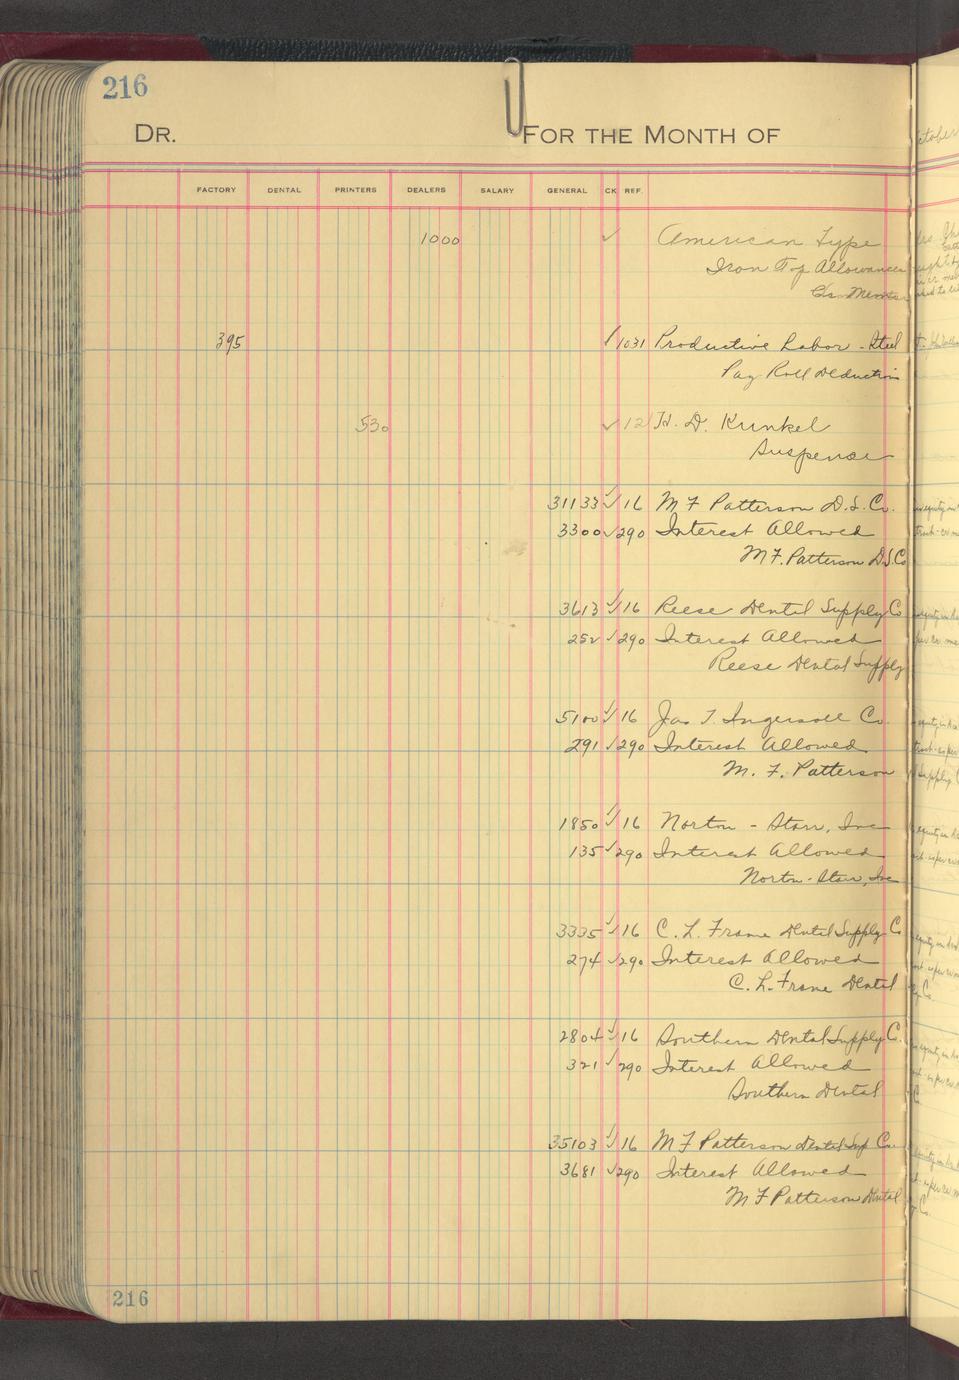 216
DR. FOR THE MONTH OF
FACTORY DENTAL PRINTERS DEALERS SALARY GENERAL CK REF.
1000 ✓ American Type
Iron Top Allowances
395 ✓ 1031 Productive Labor - Steel
Pay Roll Deduction
530 ✓ 12 H. D. Kunkel
Suspense
31133 ✓✓ 16 M F Patterson D.S. Co.
3300 ✓ 290 Interest Allowed
M F. Patterson D.S. Co
3613 ✓✓ 16 Reese Dental Supply Co
252 ✓ 290 Interest Allowed
Reese Dental Supply
5100 ✓✓ 16 Jas T. Ingersoll Co.
291 ✓ 290 Interest Allowed
M. F. Patterson
1850 ✓✓ 16 Norton - Starr, Inc
135 ✓ 290 Interest Allowed
Norton - Starr, Inc
3335 ✓✓ 16 C. L. Frame Dental Supply Co
274 ✓ 290 Interest Allowed
C. L. Frame Dental
2804 ✓✓ 16 Southern Dental Supply C.
321 ✓ 290 Interest Allowed
Southern Dental
35103 ✓✓ 16 M F Patterson Dental Sup Co.
3681 ✓ 290 Interest Allowed
M F Patterson Dental
216